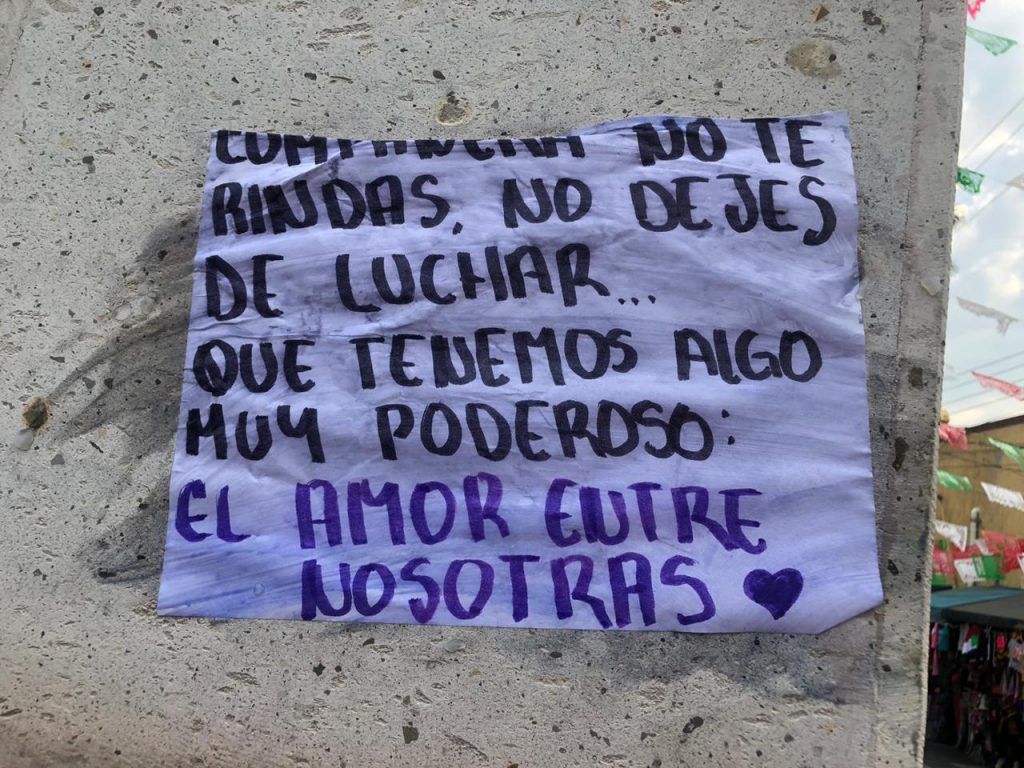 COMPAÑERA NO TE
RINDAS, NO DEJES
DE LUCHAR...
QUE TENEMOS ALGO
MUY PODEROSO:
EL AMOR ENTRE
NOSOTRAS